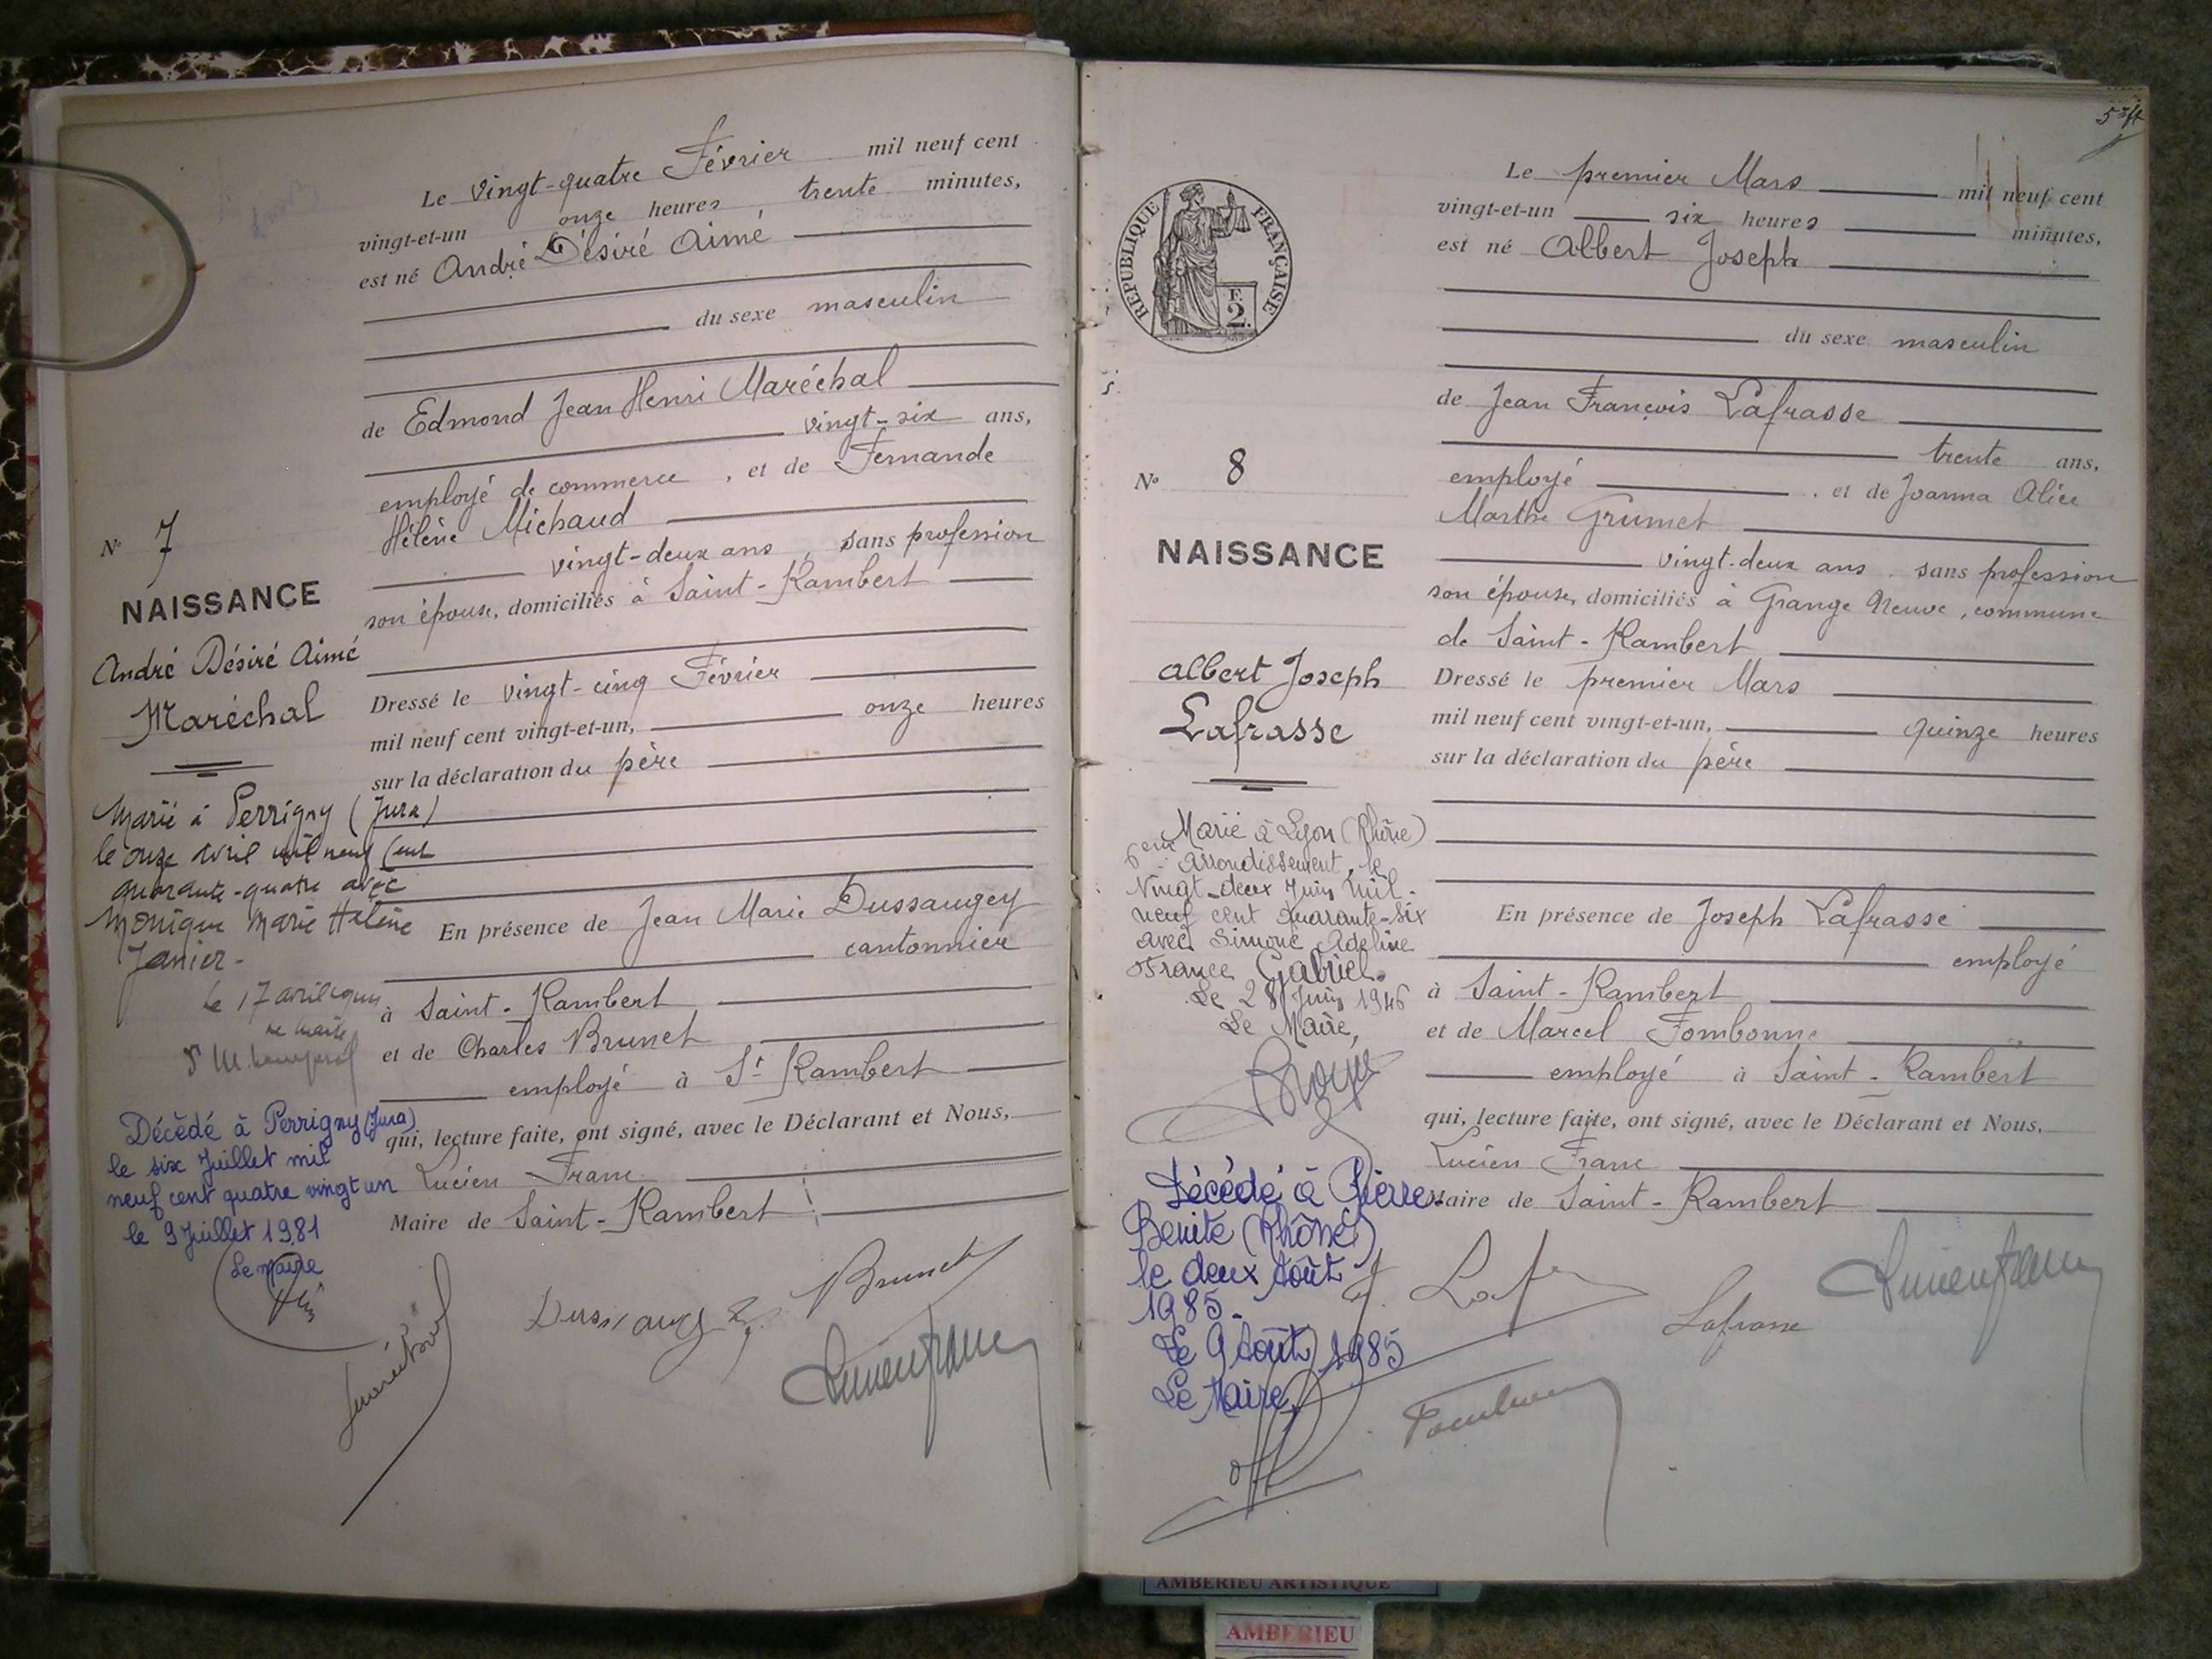 Le vingt-quatre Février mil neuf cent
vingt-et-un onze heures trente minutes,
est né André Désiré Aimé
du sexe masculin
de Edmond Jean Henri Maréchal
vingt-six ans,
employé de commerce, et de Fernande
Hélène Michaud
vingt-deux ans, sans profession
son épouse, domiciliés à Saint-Rambert
Dressé le vingt-cinq Février
mil neuf cent vingt-et-un, onze heures
sur la déclaration du père
En présence de Jean Marie Dussaugey
cantonnier
à Saint-Rambert
et de Charles Brunet
employé à St Rambert
qui, lecture faite, ont signé, avec le Déclarant et Nous,
Lucien Franc
Maire de Saint-Rambert
N° 7
NAISSANCE
André Désiré Aimé
Maréchal
Marié à Perrigny (Jura)
le onze avril mil neuf cent
quarante-quatre avec
Monique Marie Hélène
Janier-
Le 17 avril 1944
Le Maire
Décédé à Perrigny (Jura)
le six Juillet mil
neuf cent quatre vingt un
le 9 Juillet 1981
Le Maire
Maréchal
Dussaugey
Brunet
Lucien Franc
REPUBLIQUE FRANÇAISE
F.
2.
Le premier Mars mil neuf cent
vingt-et-un six heures minutes,
est né Albert Joseph
du sexe masculin
de Jean François Lafrasse
trente ans,
employé, et de Joanna Alice
Marthe Grumet
vingt-deux ans, sans profession
son épouse, domiciliés à Grange Neuve, commune
de Saint-Rambert
Dressé le premier Mars
mil neuf cent vingt-et-un, quinze heures
sur la déclaration du père
En présence de Joseph Lafrasse
employé
à Saint-Rambert
et de Marcel Fombonne
employé à Saint-Rambert
qui, lecture faite, ont signé, avec le Déclarant et Nous,
Lucien Franc
Maire de Saint-Rambert
N° 8
NAISSANCE
Albert Joseph
Lafrasse
Marié à Lyon (Rhône)
6em arrondissement, le
Vingt-deux Juin mil
neuf cent quarante-six
avec Simone Adeline
France Gabriel.
Le 28 Juin 1946
Le Maire,
Décédé à Pierre
Benite (Rhône)
le deux Août
1985.
Le 9 Août 1985
Le Maire,
Lafrasse
Lucien Franc
AMBERIEU ARTISTIQUE
AMBERIEU